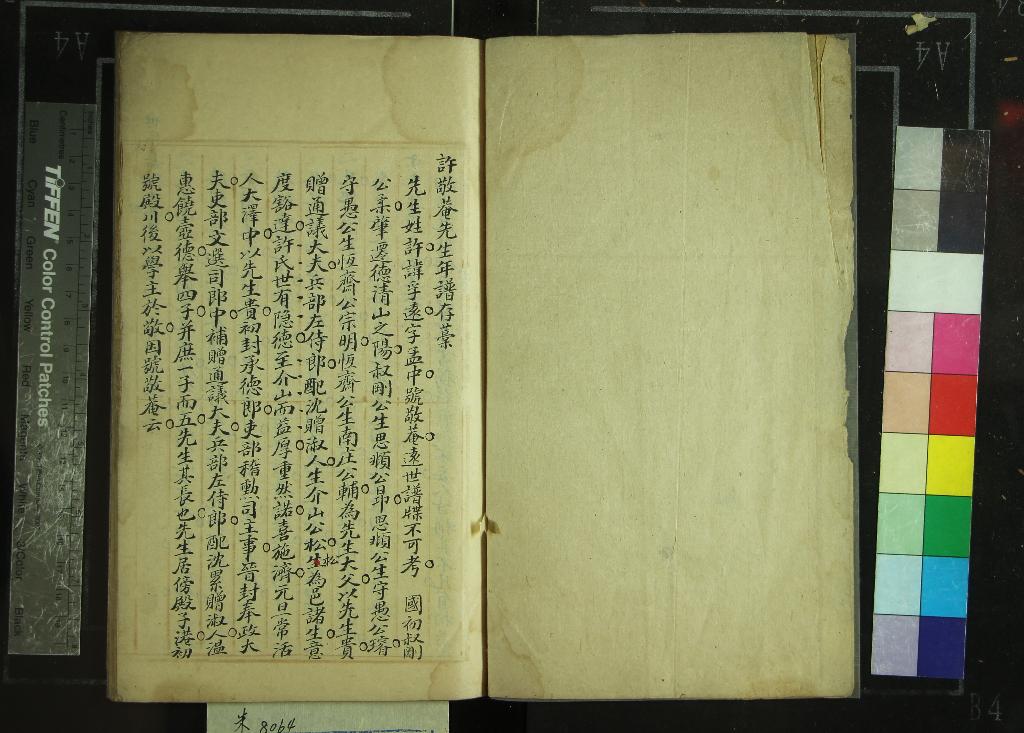 許敬菴先生年譜存藁
先生姓許諱孚遠字孟中號敬菴遠世譜牒不可考 國初叔剛
公柔肇遷德清山之陽叔剛公生思順公昂思順公生守愚公璿
守愚公生恆齋公宗明恆齋公生南庄公輔為先生大父以先生貴
贈通議大夫兵部左侍郎配沈贈淑人生介山公松 松為邑諸生意
度豁達許氏世有隐德至介山而益厚重然諾喜施濟元旦常活
人大澤中以先生貴初封承德郎吏部稽勲司主事晉封奉政大
夫吏部文選司郎中補贈通議大夫兵部左侍郎配沈累贈淑人温
惠饒壼德舉四子并庶一子而五先生其長也先生居傍殿子港初
號殿川後以學主於敬因號敬菴云
TIFFEN Color Control Patches
Centimetres
Inches
Blue
Cyan
Green
Yellow
Red
Magenta
White
3/Color
Black
A4
A4
B4
朱 8064